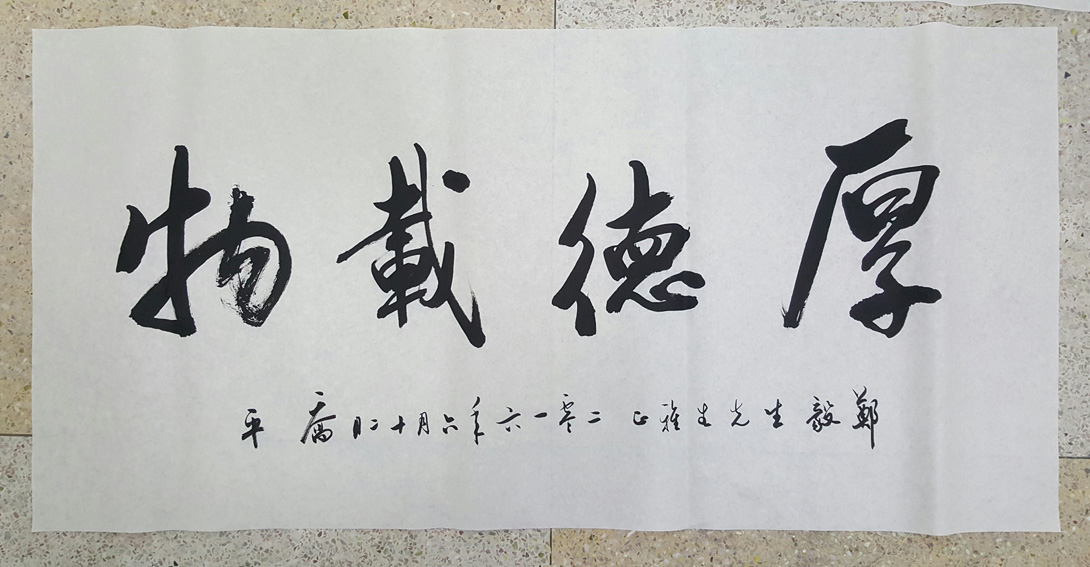 厚德載物
鄭毅生先生雅正 二零一六年六月十二日 喬平